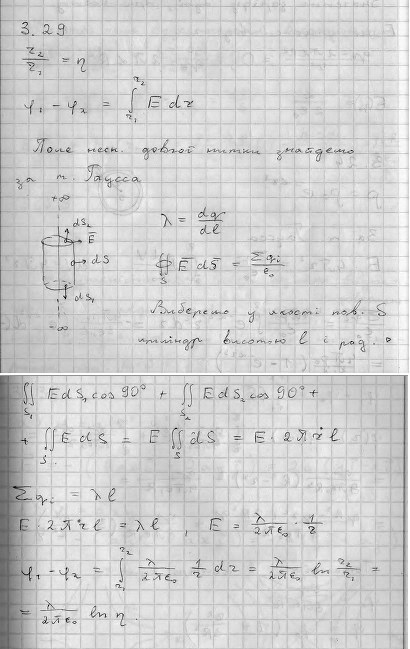 3.29
r₂/r₁ = η
φ₁ - φ₂ = ∫_{r₁}^{r₂} E dr
Поле неск. довгої нитки знайдемо
за т. Гаусса
+∞
dS₂
E̅
dS
dS₁
-∞
λ = dq/dl
∯_S E̅ dS̅ = Σqᵢ/ε₀
Виберемо у якості пов. S
циліндр висотою l і рад. r
∬_{S₁} E dS₁ cos 90° + ∬_{S₂} E dS₂ cos 90° +
+ ∬_S E dS = E ∬_S dS = E · 2πrl
Σqᵢ = λl
E · 2πrl = λl , E = λ/2πε₀ · 1/r
φ₁ - φ₂ = ∫_{r₁}^{r₂} λ/2πε₀ 1/r dr = λ/2πε₀ ln r₂/r₁ =
= λ/2πε₀ ln η.